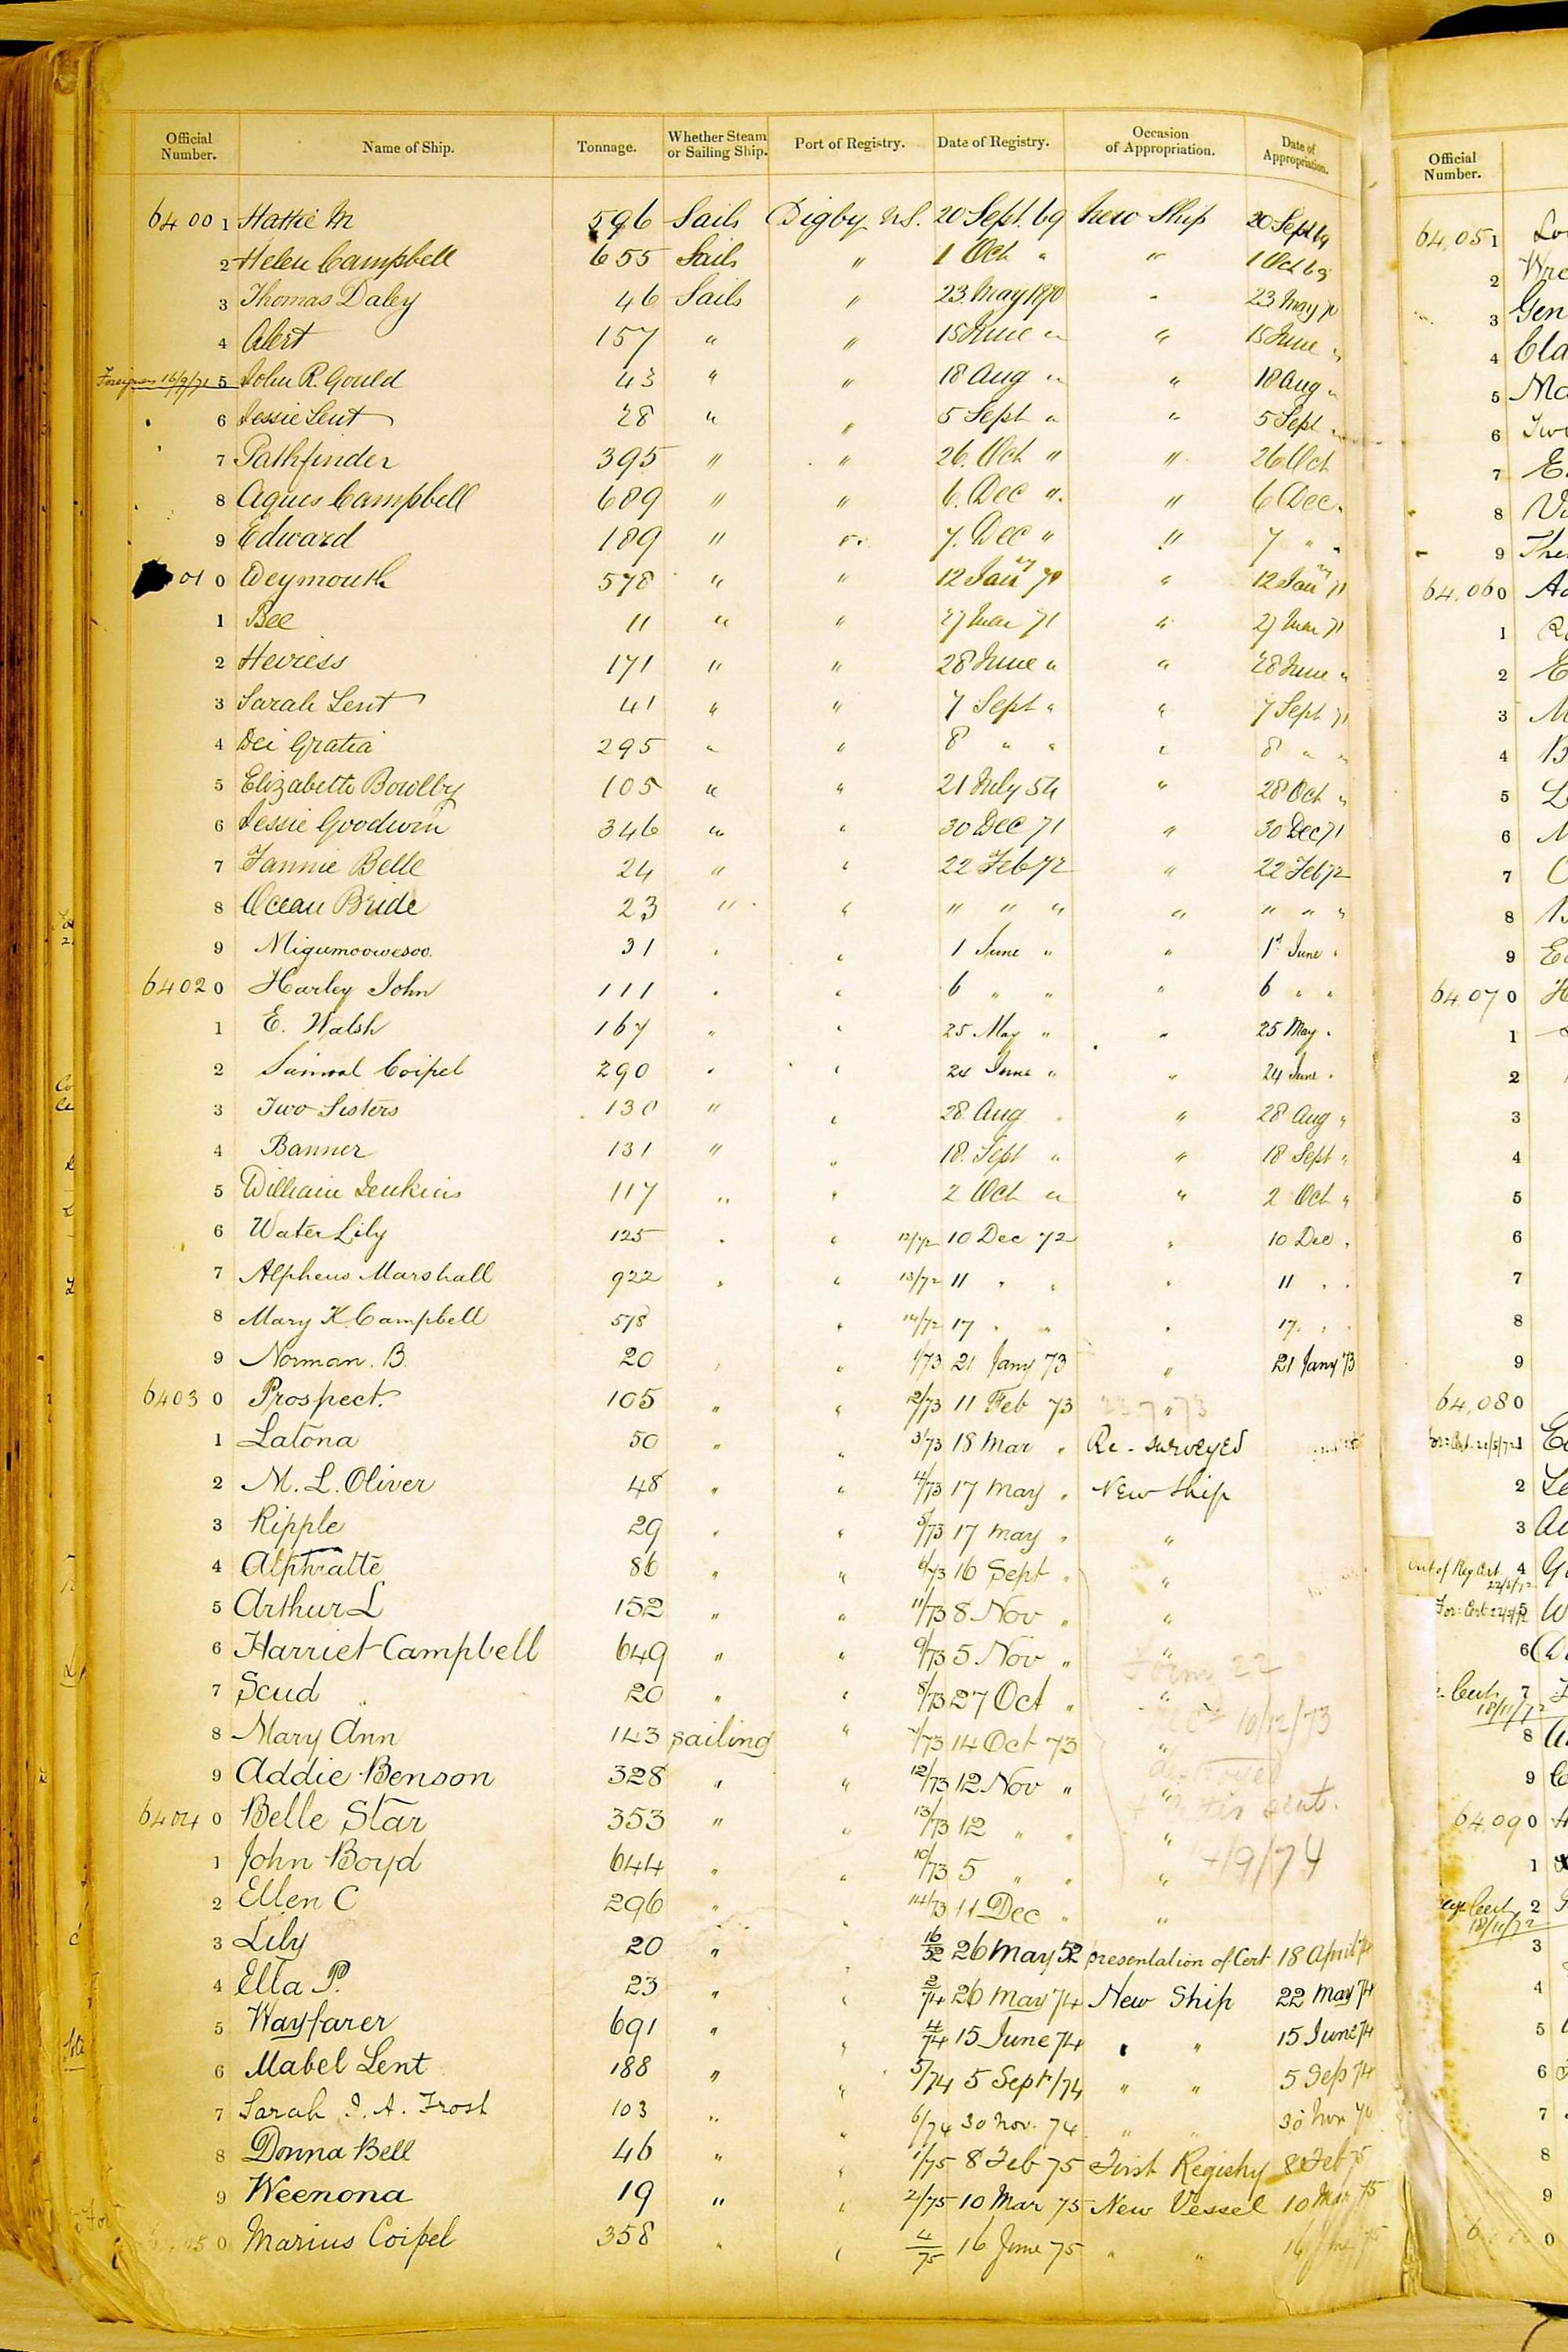 Official Number. Name of Ship. Tonnage. Whether Steam or Sailing Ship. Port of Registry. Date of Registry. Occasion of Appropriation. Date of Appropriation. Official Number.
64001 Hattie M 596 Sails Digby N.S. 20 Sept. 69 New Ship 20 Sept 69
2 Helen Campbell 655 Sails " 1 Oct " " 1 Oct 69
3 Thomas Daley 46 Sails " 23 May 1870 " 23 May 70
4 Alert 157 " " 15 June " " 15 June "
Foreigner 16/9/71 5 John R. Gould 43 " " 18 Aug " " 18 Aug "
6 Jessie Lent 28 " " 5 Sept " " 5 Sept "
7 Pathfinder 395 " " 26. Oct " " 26 Oct
8 Agnes Campbell 689 " " 6. Dec " " 6 Dec.
9 Edward 189 " " 7. Dec " " 7 " "
01 0 Weymouth 578 " " 12 Jany 70 " 12 Jany 71
1 Bee 11 " " 27 Mar 71 " 27 Mar 71
2 Heiress 171 " " 28 June " " 28 June "
3 Sarah Lent 41 " " 7 Sept " " 7 Sept 71
4 Dei Gratia 295 " " 8 " " " 8 " "
5 Elizabeth Bowlby 105 " " 21 July 54 " 28 Oct "
6 Jessie Goodwin 346 " " 30 Dec 71 " 30 Dec 71
7 Fannie Belle 24 " " 22 Feb 72 " 22 Feb 72
8 Ocean Bride 23 " " " " " " " " "
9 Migumoowesoo. 31 " " 1 June " " 1st June "
64020 Harley John 111 " " 6 " " " 6 " "
1 E. Walsh 167 " " 25 May " " 25 May "
2 Coipel 290 " " 24 June " " 24 June "
3 Two Sisters 130 " " 28 Aug " " 28 Aug "
4 Banner 131 " " 18. Sept " " 18 Sept "
5 William Jenkins 117 " " 2 Oct " " 2 Oct "
6 Water Lily 125 " " 12/72 10 Dec 72 " 10 Dec "
7 Alpheus Marshall 922 " " 13/72 11 " " " 11 " "
8 Mary K. Campbell 578 " 14/72 17 " " " 17. " "
9 Norman. B. 20 " " 1/73 21 Jany 73 " 21 Jany 73
64030 Prospect. 105 " " 2/73 11 Feb 73 "
1 Latona 50 " " 3/73 18 Mar " Re-surveyed
2 M. L. Oliver 48 " " 4/73 17 May " New Ship
3 Ripple 29 " " 5/73 17 May " "
4 Alphratte 86 " " 6/73 16 Sept " "
5 Arthur L 152 " " 11/73 8 Nov " "
6 Harriet Campbell 649 " " 9/73 5 Nov " "
Form 22
7 Scud 20 " " 8/73 27 Oct " "
10/12/73
8 Mary Ann 143 sailing " 7/73 14 Oct 73 "
9 Addie Benson 328 " " 12/73 12 Nov " "
sent.
64040 Belle Star 353 " " 13/73 12 " " "
1 John Boyd 644 " " 10/73 5 " " "
2 Ellen C 296 " " 14/73 11 Dec " "
3 Lily 20 " " 16/52 26 May 52 presentation of Cert 18 April 74
4 Ella P. 23 " " 2/74 26 May 74 New Ship 22 May 74
5 Wayfarer 691 " " 4/74 15 June 74 " " 15 June 74
6 Mabel Lent 188 " " 5/74 5 Sept/74 " " 5 Sep 74
7 Sarah I. A. Frost 103 " " 6/74 30 Nov. 74 " " 30 Nov
8 Donna Bell 46 " " 1/75 8 Feb 75 First Registry 8 Feb 75
9 Weenona 19 " " 2/75 10 Mar 75 New Vessel 10 Mar 75
0 Marius Coipel 358 " " 4/75 16 June 75 " " 16 June 75
64,051
2
3 Gen
4 Cla
5
6
7
8
9
64,060
1
2
3
4
5
6
7
8
9
64,070
1
2
3
4
5
6
7
8
9
64,080
1
2
3
4
5
6
7
18/11/72
8
9
64,090
1
2
18/11/72
3
4
5
6
7
8
9
0